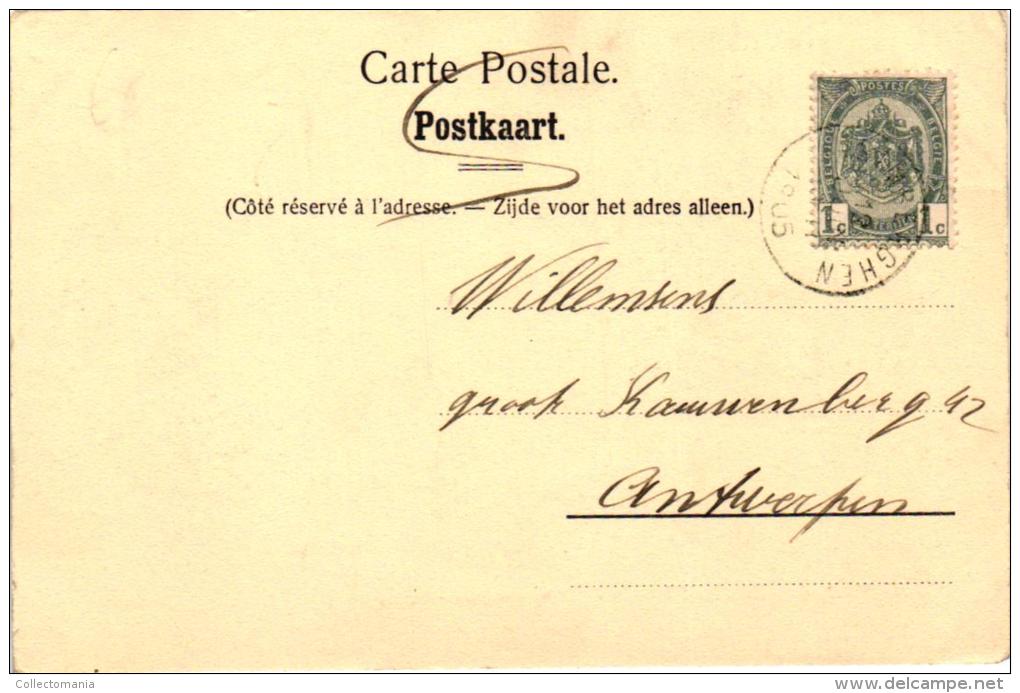 Carte Postale.
Postkaart.
(Côté réservé à l'adresse. — Zijde voor het adres alleen.)
POSTES
BELGIQUE BELGIË
1c 1c
GHEN
1905
Willemsens
groot Kauwenberg 42
Antwerpen
Collectomania
www.delcampe.net